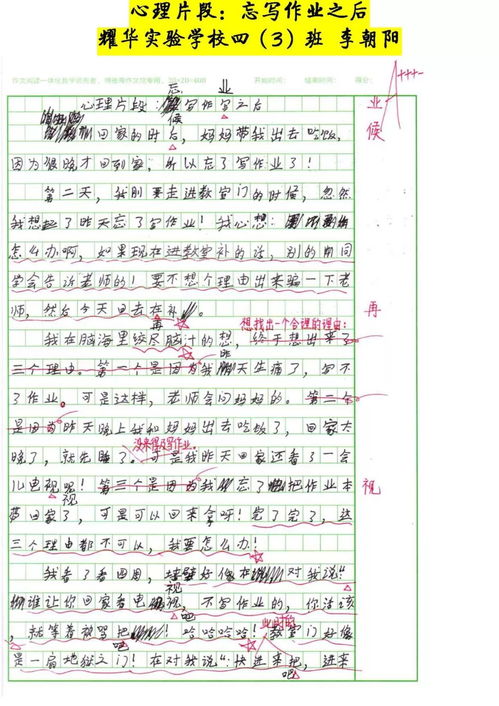 心理片段：忘写作业之后
耀华实验学校四（3）班 李朝阳
20×20=400 开始时间： 结束时间： 得分：
A+++
忘 业
心理片段：写作字之后 业
候 候
回家的时后，妈妈带我出去吃饭，
因为很晚才回到家，所以忘了写作业了！
第二天，我刚要走进教室门的时候，忽然
我想起了昨天忘了写作业！我心想：
怎么办啊，如果现在进教室补的话，别的同
学会告诉老师的！要不想个理由出来骗一下老
师，然后今天回去在补
再 再
想找出一个合理的理由：
我在脑海里绞尽脑汁的想，终于想出来了
三个理由。第一个是因为我昨天生病了，写不
了作业。可是这样，老师会问妈妈的。第二个
是因为昨天晚上我和妈妈出去吃饭了，回家太
没来得及写作业。
晚了，就先睡了。可是我昨天回家还看了一会
儿电视呢！第三个是因为我忘了把作业本
视 视
带回家了，可是可以回来拿呀！完了完了，这
三个理由都不可以，我要怎么办！
我看了看四周，墙壁好像在对我说“
视
谁让你回家看电视，不写作业的，你活该
吧 此时的
，就等着被骂把！哈哈哈哈！教室门好像
是一扇地狱之门！在对我说“快进来把，进来
吧